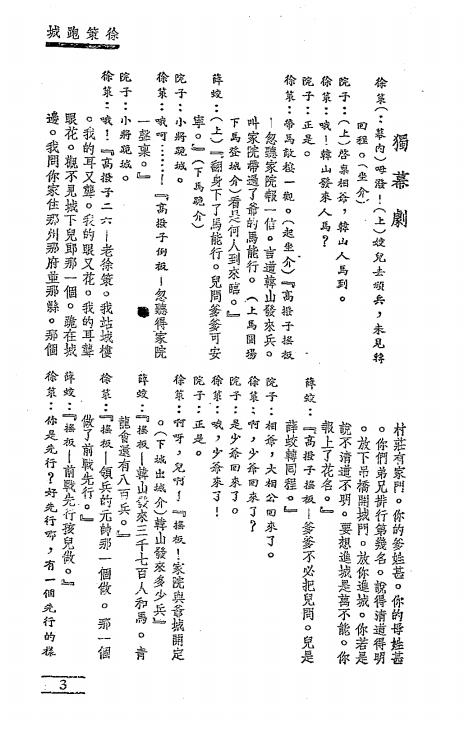 徐策跑城
獨幕劇
徐策：(：幕內)嘚潑！(上)姪兒去領兵，未見轉
回程。(坐介)
院子：(上)啓稟相爺，韓山人馬到。
徐策：哦！韓山發來人馬？
院子：正是。
徐策：帶馬敵樓一觀。(起坐介)『高撥子搖板
—忽聽家院報一信。言道韓山發來兵。
叫家院帶過了爺的馬能行。(上馬圓場
下馬登城介)看是何人到來臨。』
薛蛟：(上)『翻身下了馬能行。兒問爹爹可安
寧。』(下馬跪介)
院子：小將跪城。
徐策：哦呵………！『高撥子倒板—忽聽得家院
一聲稟。』
院子：小將跪城。
徐策：哦！『高撥子二六—老徐策。我站城樓
。我的耳又聾。我的眼又花。我的耳聾
眼花。觀不見城下兒郎那一個。跪在城
邊。我問你家住那州那府並那縣。那個
村莊有家門。你的爹姓甚。你的母姓甚
。你們弟兄排行第幾名。說得清道得明
。放下吊橋開城門。放你進城。你若是
說不清道不明。要想進城是萬不能。你
報上了花名。』
薛蛟：『高撥子搖板—爹爹不必把兒問。兒是
薛蛟轉回程。』
院子：相爺，大相公回來了。
徐策：啊，少爺回來了？
院子：是少爺回來了。
徐策：哦，少爺來了！
院子：正是。
徐策：啊呀，兒啊！『搖板！家院與爺城開定
。(下城出城介)韓山發來多少兵』
薛蛟：『搖板—韓山發來三千七百人和馬。青
龍會還有八百兵。』
徐策：『搖板—領兵的元帥那一個做。那一個
做了前戰先行。』
薛蛟：『搖板—前戰先行孩兒做。』
徐策：你是先行？好先行嘚，有一個先行的樣
3